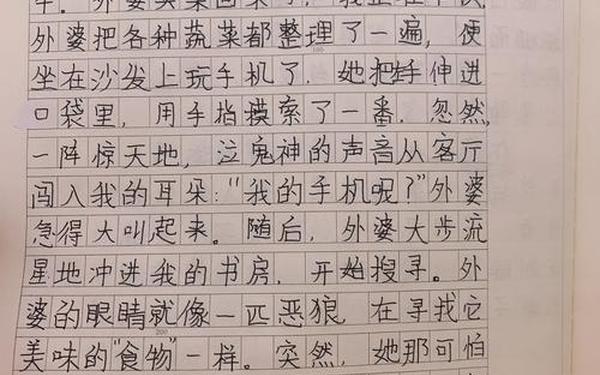 外婆把各种蔬菜都整理了一遍，便
坐在沙发上玩手机了，她把手伸进
口袋里，用手指摸索了一番，忽然，
一阵惊天地，泣鬼神的声音从客厅
闯入我的耳朵：“我的手机呢？”外婆
急得大叫起来。随后，外婆大步流
星地冲进我的书房，开始搜寻。外
婆的眼睛就像一匹恶狼，在寻找它
美味的“食物”一样。突然，她那可怕